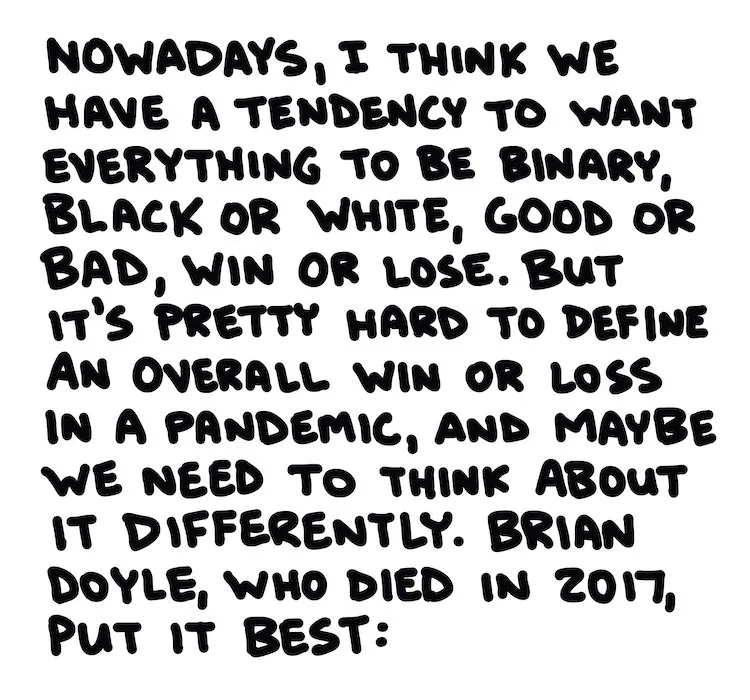 NOWADAYS, I THINK WE
HAVE A TENDENCY TO WANT
EVERYTHING TO BE BINARY,
BLACK OR WHITE, GOOD OR
BAD, WIN OR LOSE. BUT
IT'S PRETTY HARD TO DEFINE
AN OVERALL WIN OR LOSS
IN A PANDEMIC, AND MAYBE
WE NEED TO THINK ABOUT
IT DIFFERENTLY. BRIAN
DOYLE, WHO DIED IN 2017,
PUT IT BEST: